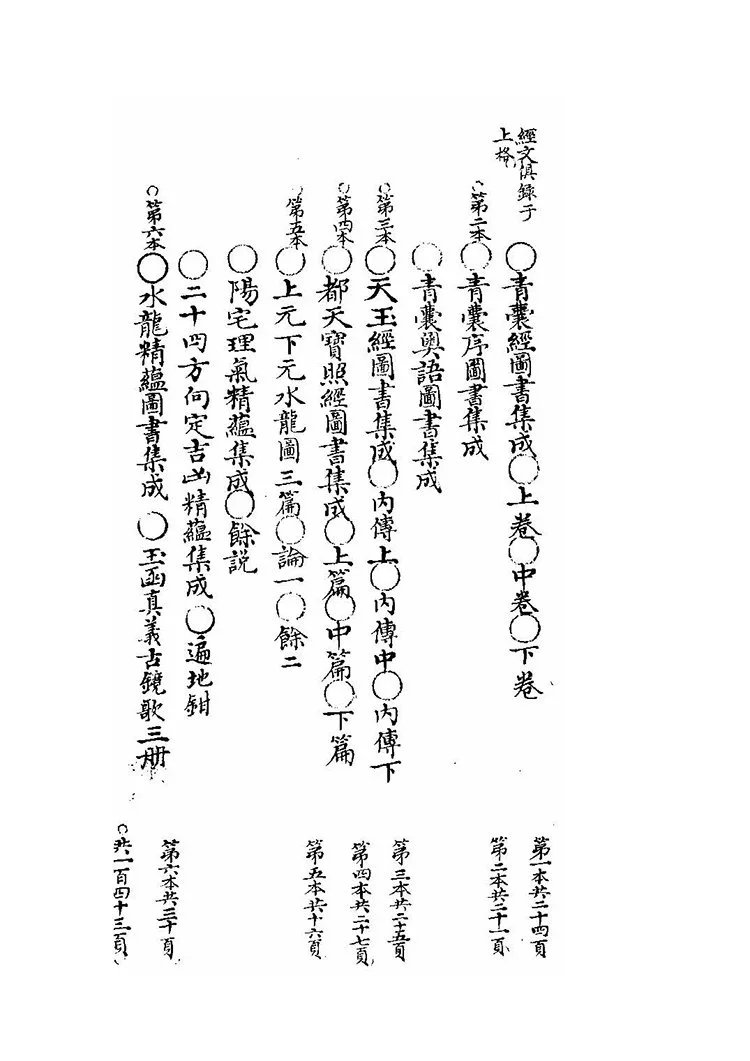 經文俱錄于
上格
〇青囊經圖書集成〇上卷〇中卷〇下卷
〇第二本〇青囊序圖書集成
〇青囊奧語圖書集成
〇第三本〇天玉經圖書集成〇內傳上〇內傳中〇內傳下
〇第四本〇都天寶照經圖書集成〇上篇〇中篇〇下篇
〇第五本〇上元下元水龍圖三篇〇論一〇餘二
〇陽宅理氣精蘊集成〇餘説
〇二十四方向定吉凶精蘊集成〇遍地鉗
〇第六本〇水龍精蘊圖書集成〇玉函真義古鏡歌三册
第一本共二十四頁
第二本共二十一頁
第三本共二十五頁
第四本共二十七頁
第五本共十六頁
第六本共三十頁
〇共一百四十三頁